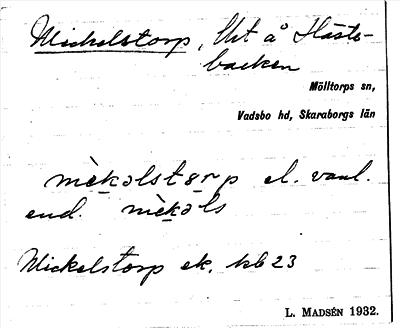 Mickelstorp, lht å Häste-
backen
Mölltorps sn,
Vadsbo hd, Skaraborgs län
mèkəlstɵrp el. vanl.
end. mèkəls
Mickelstorp ek. kb 23
L. MADSÉN 1932.